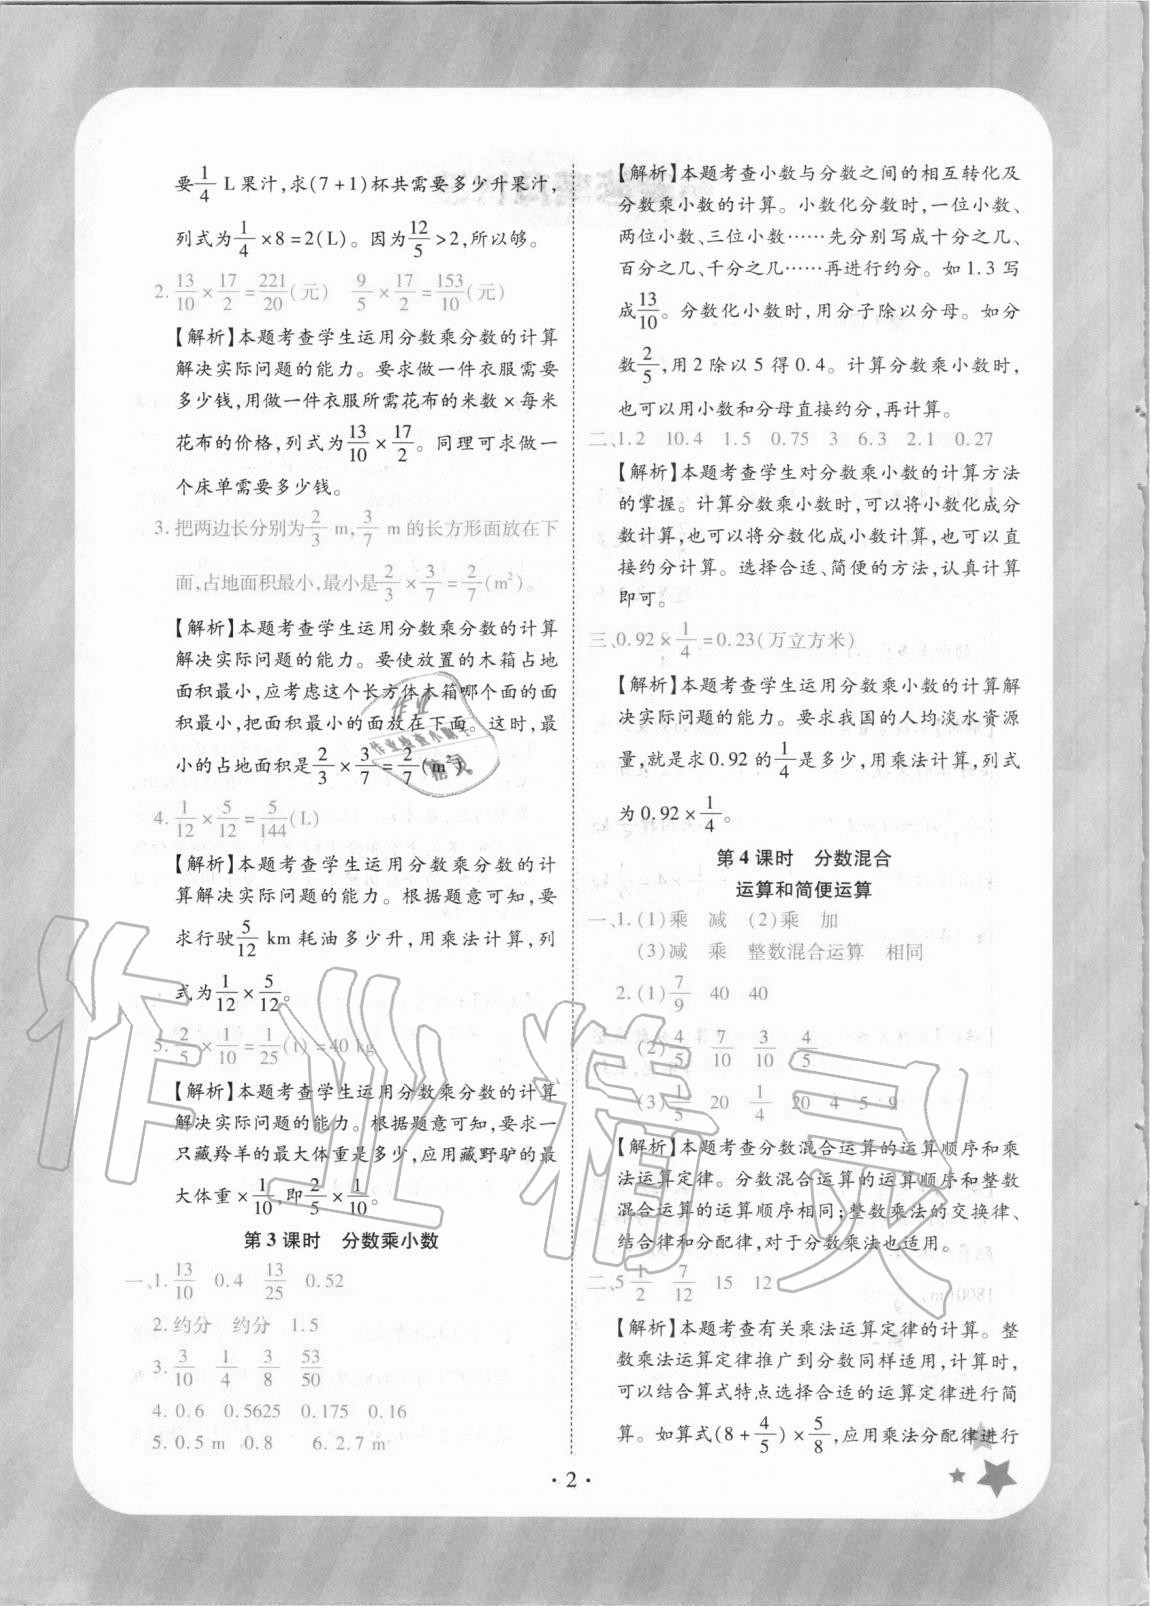 要1/4 L果汁,求(7+1)杯共需要多少升果汁,
列式为1/4×8=2(L)。因为12/5>2,所以够。
2. 13/10×17/2=221/20(元) 9/5×17/2=153/10(元)
【解析】本题考查学生运用分数乘分数的计算
解决实际问题的能力。要求做一件衣服需要
多少钱,用做一件衣服所需花布的米数×每米
花布的价格,列式为13/10×17/2。同理可求做一
个床单需要多少钱。
3. 把两边长分别为2/3 m,3/7 m的长方形面放在下
面,占地面积最小,最小是2/3×3/7=2/7(m²)。
【解析】本题考查学生运用分数乘分数的计算
解决实际问题的能力。要使放置的木箱占地
面积最小,应考虑这个长方体木箱哪个面的面
积最小,把面积最小的面放在下面。这时,最
小的占地面积是2/3×3/7=2/7(m²)。
4. 1/12×5/12=5/144(L)
【解析】本题考查学生运用分数乘分数的计
算解决实际问题的能力。根据题意可知,要
求行驶5/12 km耗油多少升,用乘法计算,列
式为1/12×5/12。
5. 2/5×1/10=1/25(t)=40 kg
【解析】本题考查学生运用分数乘分数的计算
解决实际问题的能力。根据题意可知,要求一
只藏羚羊的最大体重是多少,应用藏野驴的最
大体重×1/10,即2/5×1/10。
第3课时 分数乘小数
一、1. 13/10 0.4 13/25 0.52
2. 约分 约分 1.5
3. 3/10 1/4 3/8 53/50
4. 0.6 0.5625 0.175 0.16
5. 0.5 m 0.8 6. 2.7 m
【解析】本题考查小数与分数之间的相互转化及
分数乘小数的计算。小数化分数时,一位小数、
两位小数、三位小数……先分别写成十分之几、
百分之几、千分之几……再进行约分。如1.3写
成13/10。分数化小数时,用分子除以分母。如分
数2/5,用2除以5得0.4。计算分数乘小数时,
也可以用小数和分母直接约分,再计算。
二、1.2 10.4 1.5 0.75 3 6.3 2.1 0.27
【解析】本题考查学生对分数乘小数的计算方法
的掌握。计算分数乘小数时,可以将小数化成分
数计算,也可以将分数化成小数计算,也可以直
接约分计算。选择合适、简便的方法,认真计算
即可。
三、0.92×1/4=0.23(万立方米)
【解析】本题考查学生运用分数乘小数的计算解
决实际问题的能力。要求我国的人均淡水资源
量,就是求0.92的1/4是多少,用乘法计算,列式
为0.92×1/4。
第4课时 分数混合
运算和简便运算
一、1. (1)乘 减 (2)乘 加
(3)减 乘 整数混合运算 相同
2. (1)7/9 40 40
(2)4/5 7/10 3/10 4/5
(3)1/5 20 1/4 20 4 5 9
【解析】本题考查分数混合运算的运算顺序和乘
法运算定律。分数混合运算的运算顺序和整数
混合运算的运算顺序相同;整数乘法的交换律、
结合律和分配律,对于分数乘法也适用。
二、5 1/2 7/12 15 12
【解析】本题考查有关乘法运算定律的计算。整
数乘法运算定律推广到分数同样适用,计算时,
可以结合算式特点选择合适的运算定律进行简
算。如算式(8+4/5)×5/8,应用乘法分配律进行
· 2 ·
作业精灵